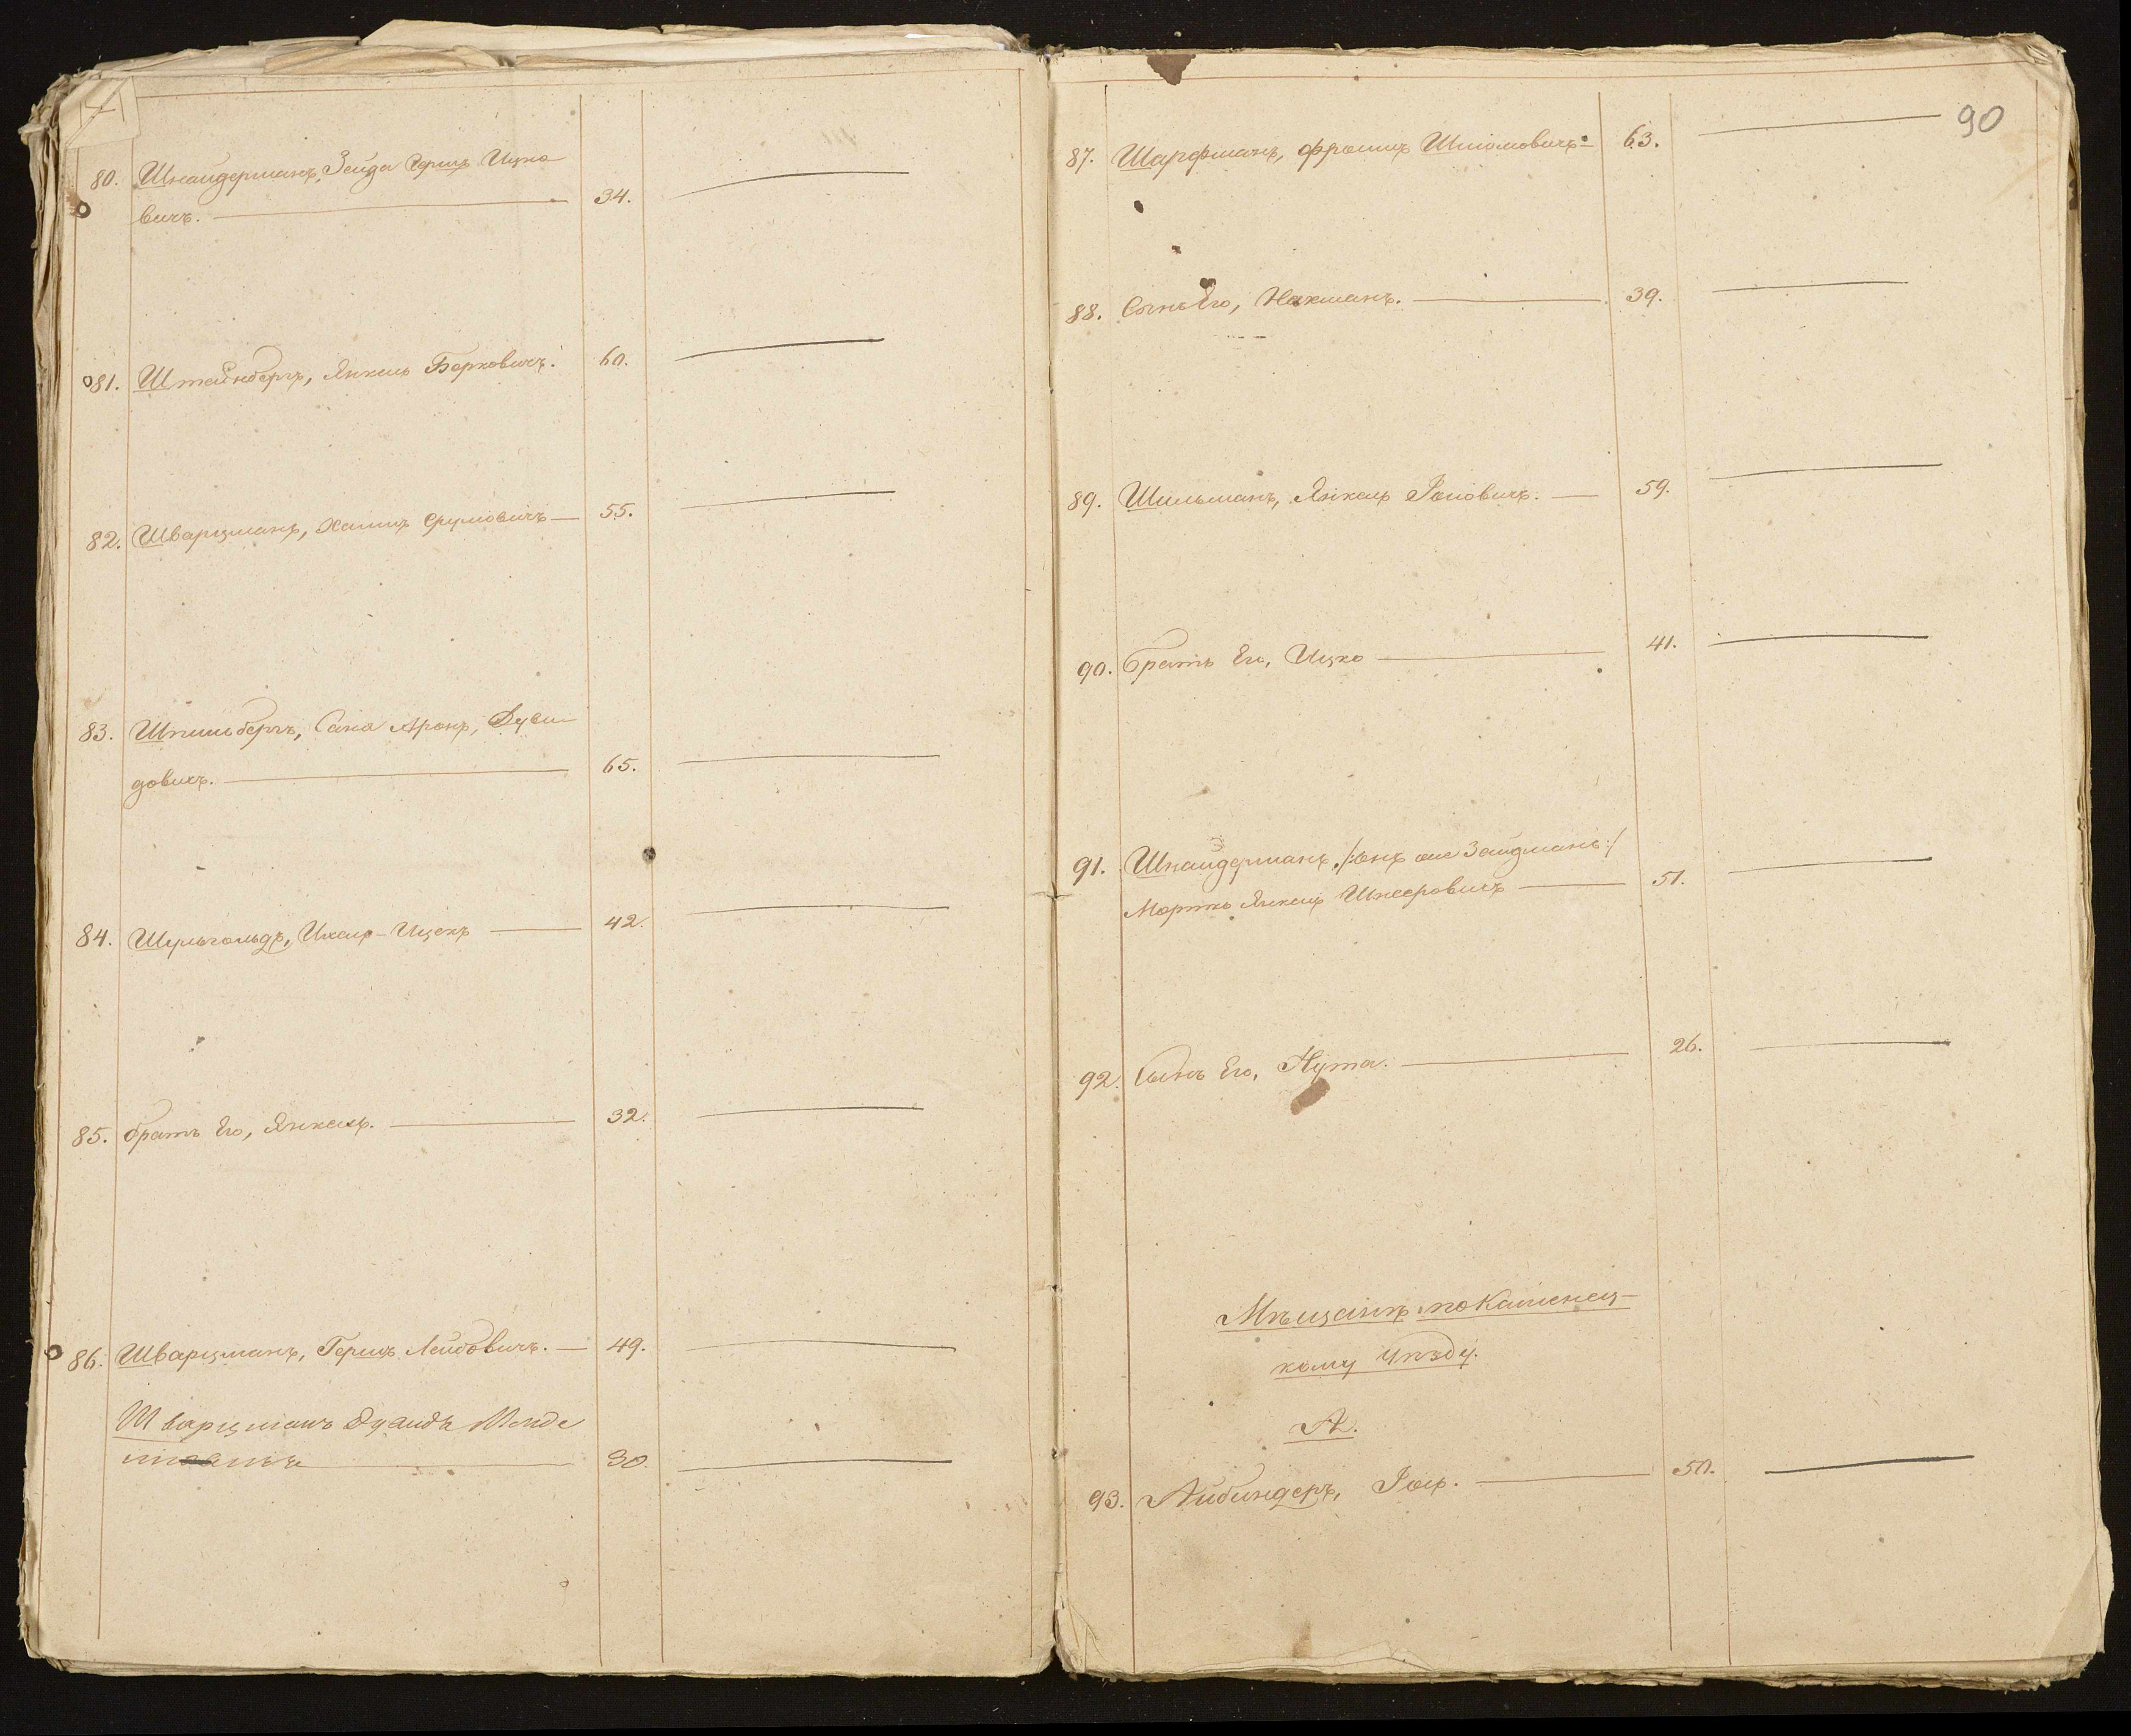 80. Шнайдерманъ, Зейда Гершъ Ицко
вичъ. 34.
81. Штейнбергъ, Янкель Берковичъ. 60.
82. Шварцманъ, Хаимъ Сруловичъ 55.
83. Шпильбергъ, Сана Аронъ, Дуви-
довичъ. 65.
84. Шульгольдъ, Ицекъ 42.
85. братъ Его, Янкель. 32.
86. Шварцманъ, Гершъ Лейбовичъ. 49.
Шварцманъ Дувидъ
30.
90
87. Шарфманъ, Фроимъ Шлiомовичъ 63.
88. Сынъ Его, Нахманъ. 39.
89. Шильманъ, Янкель Iосiовичъ. 59.
90. братъ Его, Ицко 41.
91. Шнайдерманъ /:онъ же Зайдманъ:/
Мортко Янкель Шнееровичъ 51.
92. Сынъ Его, Нута. 26.
Мѣщанъ по Каменец-
кому уѣзду.
А.
93. Айбиндеръ, Iось. 50.